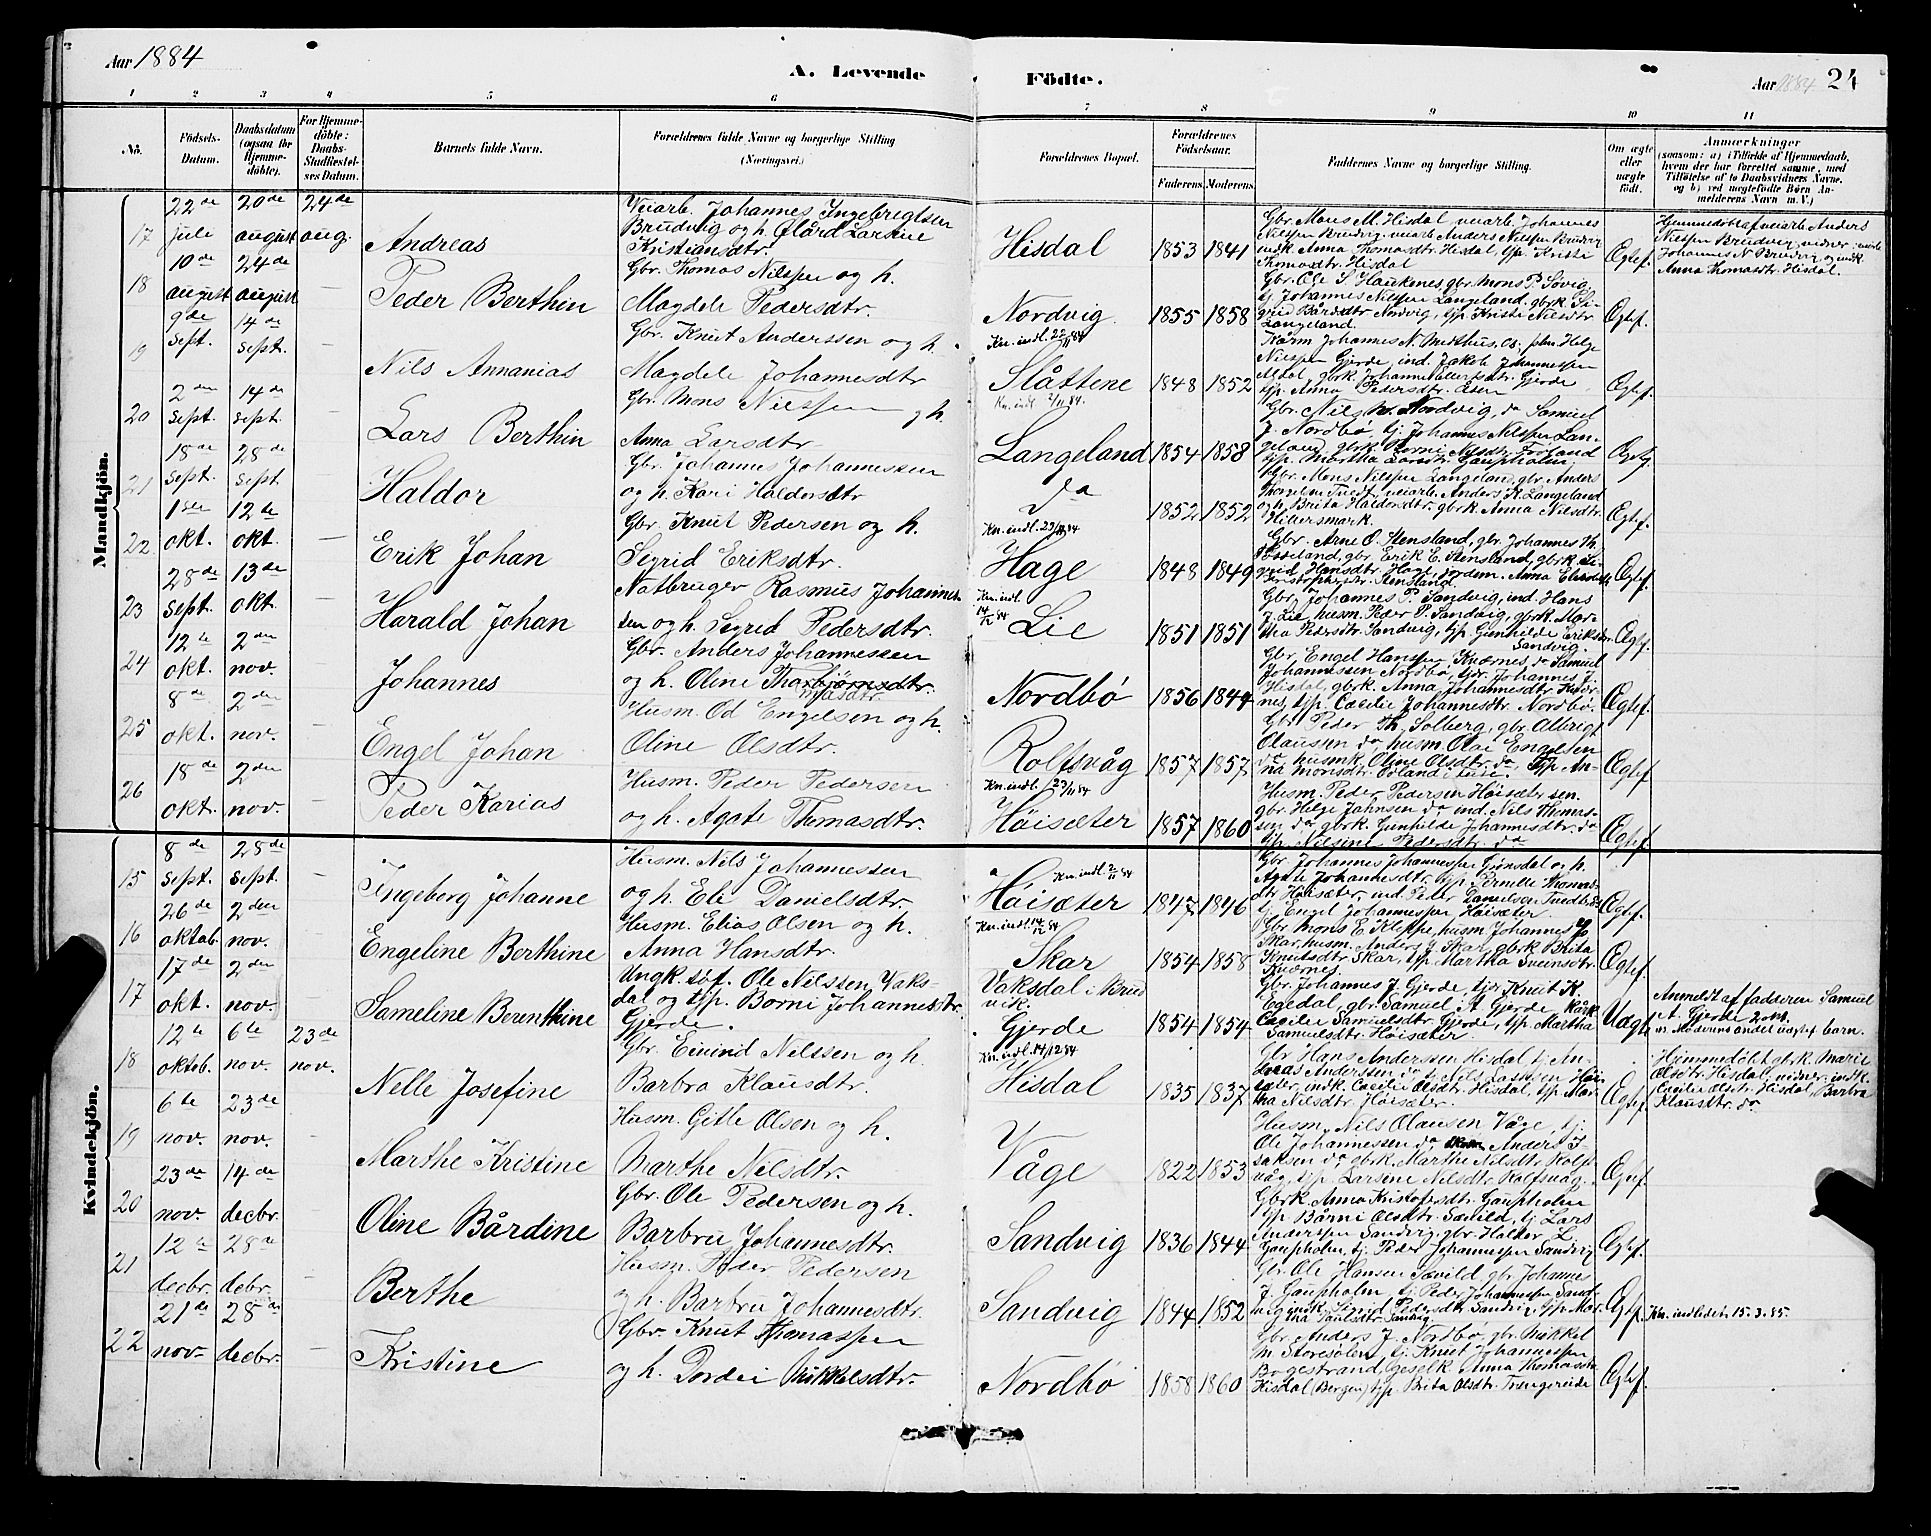 Aar 1884
A. Levende Födte.
Aar 1884 24
1 2 3 4 5 6 7 8 9 10 11
No.
Födsels-Datum.
Daabsdatum (ogsaa for Hjemmedöbte).
For Hjemmedöbte: Daabs-Stadfæstelses Datum.
Barnets fulde Navn.
Forældrenes fulde Navne og borgerlige Stilling (Næringsvei.)
Forældrenes Bopæl.
Forældrenes Födselsaar.
Faderens. Moderens.
Faddernes Navne og borgerlige Stilling.
Om ægte eller uægte födt.
Anmærkninger (saasom: a) i Tilfælde af Hjemmedaab, hvem der har forrettet samme, med Tilföielse af to Daabsvidners Navne, og b) ved uægtefödte Börn Anmelderens Navn m. V.)
Mandkjön.
17 22de juli 20de august 24de aug. Andreas
Veiarb. Johannes Ingebrigtsen
Brudvig og h. Larsine
Kristiansdtr.
Hisdal 1853 1841
Gbr. Mons M. Hisdal, veiarb. Johannes
Nilssen Brudvig, veiarb. Anders Nilssen Brudvig
indk. Anna Thomasdtr. Hisdal, t/p. Kristi
Thomasdtr. Hisdal
Ægtef.
Hjemmedöbt af veiarb. Anders
Nilssen Brudvig, vidner: veiarb
Johannes N. Brudvig og indk.
Anna Thomasdtr. Hisdal.
18 10de august 24de august — Peder Berthin
Gbr. Thomas Nilssen og h.
Magdele Pedersdtr.
Nordvig 1855 1858
Gbr. Ole S. Haukenes, gbr. Mons P. Sövig,
tj. Johannes Nilssen Langeland, gbrk. Si-
grid Bårdsdtr. Nordvig, t/p. Kristi Nilsdtr.
Langeland.
Ægtef.
19 9de sept. 14de sept. — Nils Annanias
Gbr. Knut Anderssen og h.
Magdele Johannesdtr
Kn. indl. 22/11 84
Slåttene 1848 1852
Nilssen Gjerde, ind. Jakob Johannessen
t/p. Anna Pedersdtr. Åsen
Ægtef.
20 2den sept. 14de sept. Lars Berthin
Gbr. Mons Nilssen og h.
Anna Larsdtr
Kn. indl. 2/11 84.
Langeland 1854 1858
Gbr. Nils N. Nordvig, do Samuel
J. Nordbö, tj. Johannes Nilssen Lan-
geland, gbrk. Börni Nilsdtr. Förland
t/p. Martha Larsdtr. Gaupholm
Ægtef.
21 18de sept. 28de sept. Haldor
Gbr. Johannes Johannessen
og h. Kari Haldorsdtr
do 1852 1852
Gbr. Mons Nilssen Langeland, gbr. Anders
Tvedt, veiarb. Anders K. Langeland
og h. Brita Haldorsdtr. gbrk. Anna Nilsdtr.
Ægtef.
22 1ste okt. 12te okt. — Erik Johan
Gbr. Knut Pedersen og h.
Sigrid Eriksdtr.
Kn. indl. 23/11 84
Hage 1848 1849
Gbr. Arne O. Stensland, gbr. Johannes Th.
gbr. Erik E. Stensland, gbrk. Si-
grid Hansdtr. Hage,
Stensland.
Ægtef.
23 28de sept. 13de okt. — Harald Johan
Notbruger Rasmus Johannes-
sen og h. Sigrid Pedersdtr.
Kn. indl. 14/12 84
Lie 1851 1851
Gbr. Johannes P. Sandvig, ind. Hans
J. Lie, husm. Peder P. Sandvig, gbrk. Mar-
tha Pedersdtr. Sandvig, t/p. Gunhilde Eriksdtr.
Sandvig.
Ægtef.
24 12te okt. 2den nov. — Johannes
Gbr. Anders Johannessen
og h. Oline
Nordbö 1856 1844
Gbr. Engel Hanssen Kværnes, do Samuel
Johannessen Nordbö, tjr. Johannes J.
Hisdal, gbrk. Anna Johannesdtr. Kvær-
nes, t/p. Cecilie Johannesdtr. Nordbö.
Ægtef.
25 8de okt. 2den nov. — Engel Johan
Husm. Od Engelsen og h.
Oline Olsdtr.
Rolfsvåg 1857 1857
Gbr. Peder Th. Solberg, gbr. Albrigt
Olaussen do, husm. Olai Engelsen
do, husmk. Oline Olsdtr. do, t/p. An-
na Monsdtr.
Ægtef.
26 18de okt. 2den nov. Peder Karias
Husm. Peder Pedersen
og h. Agate Thomasdtr.
Kn. indl. 23/11 84
Höisæter 1857 1860
Husm. Peder Pedersen Höisæter sen.
gbr. Helge Johnsen do ind. Nils Thomas-
sen do gbrk. Gunhilde Johannesdtr. do
t/p. Nilsine Pedersdtr. do
Ægtef.
Kvindekjön.
15 8de sept. 28de sept. Ingeborg Johanne
Husm. Nils Johannessen
og h. Eli Danielsdtr.
Kn. indl. 2/11 84
Höisæter 1847 1846
Gbr. Johannes Johannessen Gjönsdal og h.
Agate Johannesdtr. t/p. Pernille Thomas-
dtr. Höisæter, ind. Peter Danielsen
tj. Engel Johannessen Höisæter.
Ægtef.
16 26de oktob. 2den nov. Engeline Berthine
Husm. Elias Olsen og h.
Anna Hansdtr.
Kn. indl. 14/12 84
Skar 1854 1858
Gbr. Mons E. Kleppe, husm. Johannes
Skar, husm. Anders J. Skar, gbrk Brita
Knutsdtr. Skar, t/p. Martha Sveinsdtr.
Kværnes.
Ægtef.
17 17de okt. 2den nov. Sameline Berenthine
Ungk. söf. Ole Nilssen Vaks-
dal og t/p. Börni Johannesdtr.
Gjerde.
Vaksdal i Brud-
vik.
Gjerde 1854 1854
Gbr. Johannes J. Gjerde, tjr. Knut K.
Egedal, gbr. Samuel A. Gjerde, kårk
Cecilie Samuelsdtr. Gjerde, t/p. Martha
Samuelsdtr. Höisæter.
Uægte
Anmeldt af fadderen Samuel
A. Gjerde.
Moderens andet uægtef. barn.
18 12te oktob. 6te nov. 23de nov. Nelle Josefine
Gbr. Eivind Nilssen og h.
Barbra Klausdtr.
Kn. indl. 14/12 84
Hisdal 1835 1837
Gbr. Hans Anderssen Hisdal, tj. An-
dreas Anderssen do
sæter, indk. Cecilie Olsdtr. Hisdal, t/p. Mar-
tha Nilsdtr. Höisæter.
Ægtef.
Hjemmedöbt af gbrk. Marie
Olsdtr. Hisdal, vidner: indk.
Cecilie Olsdtr. Hisdal, Barbra
Klausdtr. do
19 6te nov. 23de nov. — Marthe Kristine
Husm. Gitle Olsen og h.
Marthe Nilsdtr.
Våge 1822 1853
Husm. Nils Olausen Våge, tj.
Ole Johannessen do Anders I-
saksen do, gbrk. Marthe Nilsdtr. Rolfs-
våg, t/p. Larsine Nilsdtr. Rolfsvåg.
Ægtef.
20 23de nov. 14de decbr. Oline Bårdine
Gbr. Ole Pedersen og h.
Barbru Johannesdtr.
Sandvig 1836 1844
Gbrk. Anna Kristofersdtr. Gaupholm
t/p. Börni Olsdtr. Sævild, tj. Lars
Anderssen Sandvig, gbr. Haldor L.
Gaupholm, tj. Peder Johannessen Sandvig
Ægtef.
21 12te decbr. 28de decbr. — Berthe
Husm. Peder Pedersen
og h. Barbru Johannesdtr.
Sandvig 1844 1852
Gbr. Ole Hansen Sævild, gbr. Johannes
J. Gaupholm, tj. Peder Johannessen Sand-
vig, indk. Sigrid Pedersdtr. Sandvig, t/p. Mar-
tha Paulsdtr. Sandvig
Ægtef.
Kn. indledet 15.3.85.
22 21de nov. 28de decbr. — Kristine
Gbr. Knut Thomassen
og h. Dordei Mikkelsdtr.
Nordbö 1858 1860
Gbr. Anders J. Nordbö, gbr. Mikkel
M Storesölen, tj. Knut Johannessen
Bogestrand, geselk. Anna Thomasdtr.
Hisdal (Bergen) t/p. Brita Olsdtr. Trengereide
Ægtef.